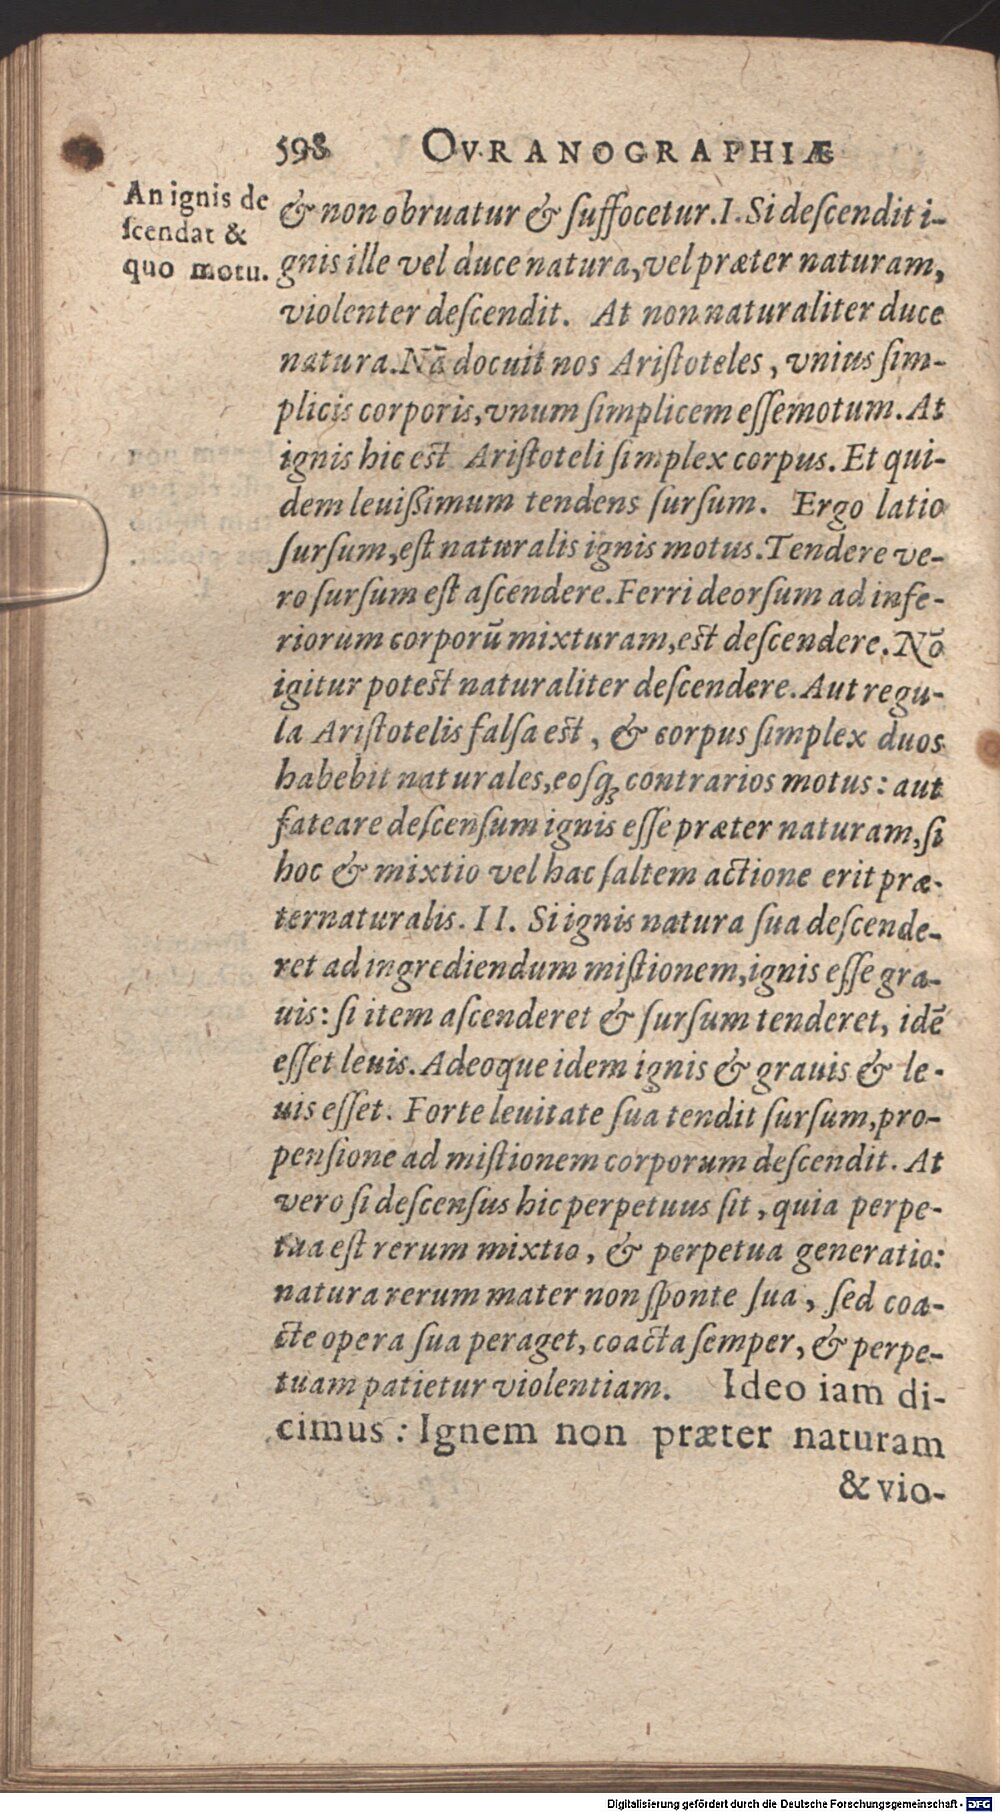 598 OVRANOGRAPHIÆ
An ignis de
ſcendat &
quo motu.
& non obruatur & ſuffocetur. I. Si deſcendit i-
gnis ille vel duce natura, vel præter naturam,
violenter deſcendit. At non naturaliter duce
natura. Nā docuit nos Ariſtoteles, vnius ſim-
plicis corporis, vnum ſimplicem eſſe motum. At
ignis hic eſt Ariſtoteli ſimplex corpus. Et qui-
dem leuiſſimum tendens ſurſum. Ergo latio
ſurſum, eſt naturalis ignis motus. Tendere ve-
ro ſurſum eſt aſcendere. Ferri deorſum ad infe-
riorum corporū mixturam, eſt deſcendere. Nō
igitur poteſt naturaliter deſcendere. Aut regu-
la Ariſtotelis falſa eſt, & corpus ſimplex duos
habebit naturales, eoſq; contrarios motus: aut
fateare deſcenſum ignis eſſe præter naturam, ſi
hoc & mixtio vel hac ſaltem actione erit præ-
ternaturalis. II. Si ignis natura ſua deſcende-
ret ad ingrediendum miſtionem, ignis eſſe gra-
uis: ſi item aſcenderet & ſurſum tenderet, idē
eſſet leuis. Adeoque idem ignis & grauis & le-
uis eſſet. Forte leuitate ſua tendit ſurſum, pro-
penſione ad miſtionem corporum deſcendit. At
vero ſi deſcenſus hic perpetuus ſit, quia perpe-
tua eſt rerum mixtio, & perpetua generatio:
natura rerum mater non ſponte ſua, ſed coa-
cte opera ſua peraget, coacta ſemper, & perpe-
tuam patietur violentiam. Ideo iam di-
cimus: Ignem non præter naturam
& vio-
Digitalisierung gefördert durch die Deutsche Forschungsgemeinschaft - DFG